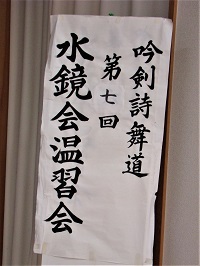 吟剣詩舞道
第七回
水鏡会温習会